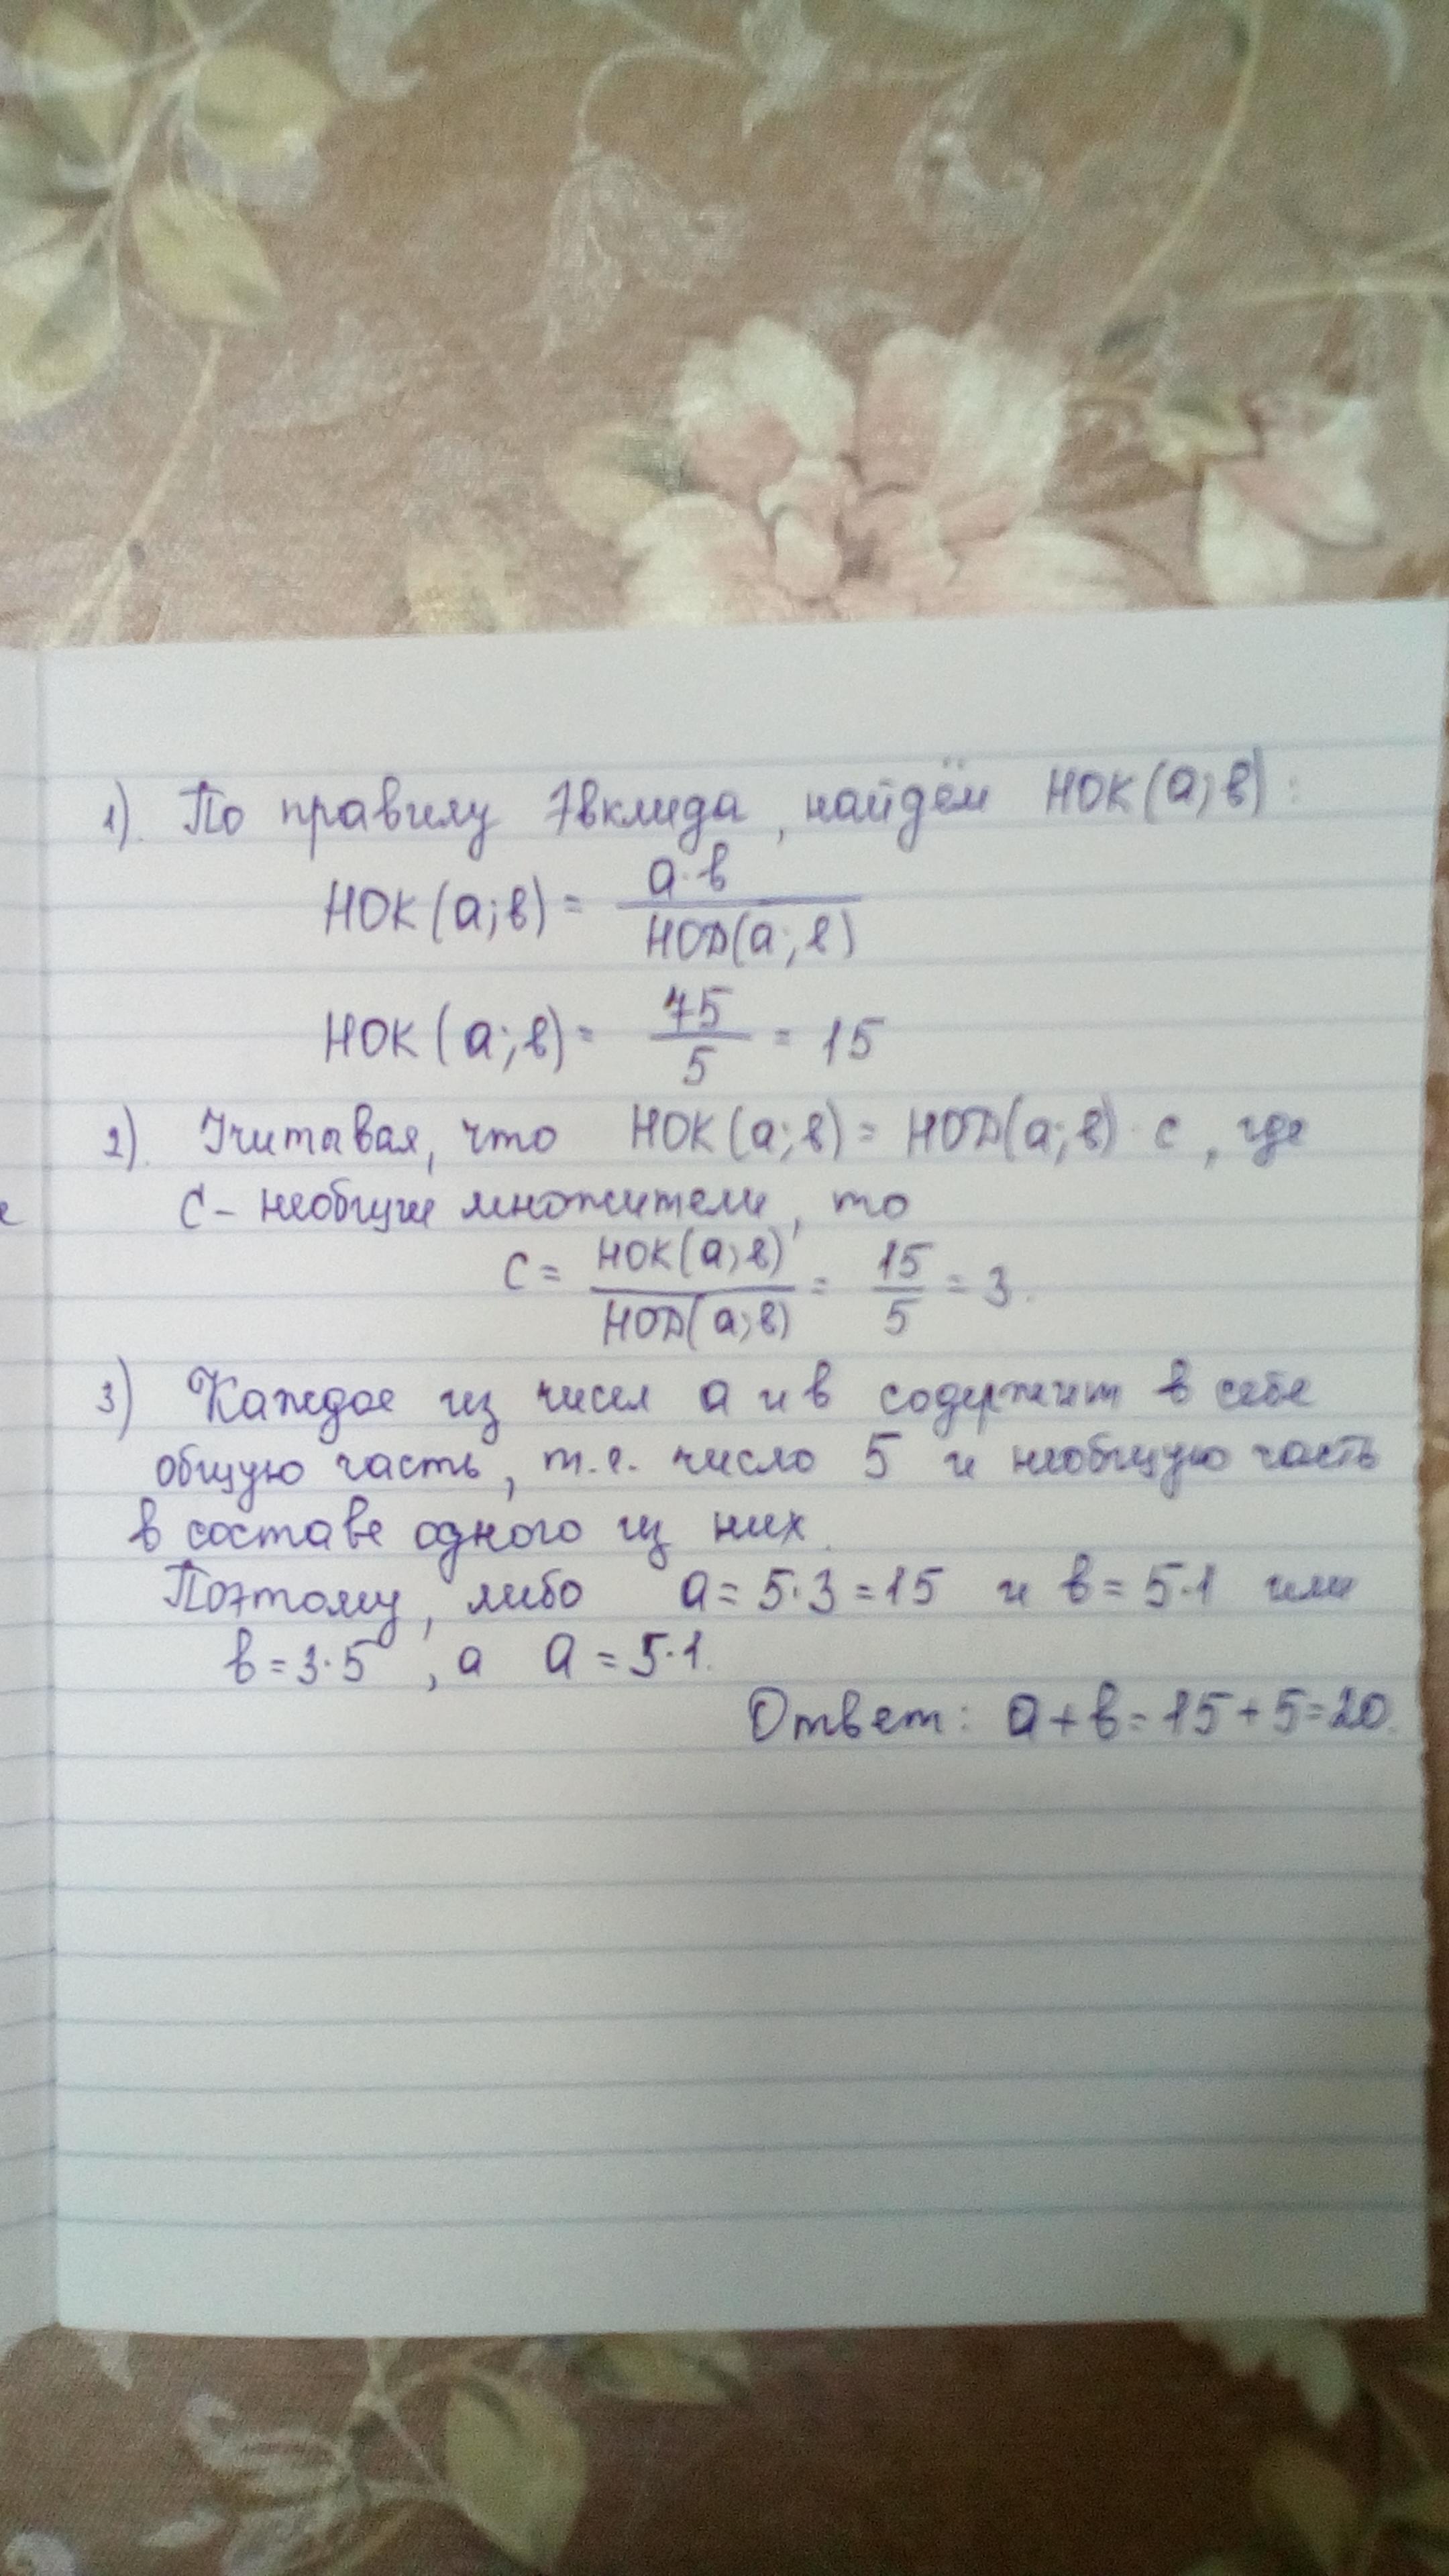 1). По правилу Эвклида, найдём НОК(а;в):
НОК(а;в) = а·в / НОД(а;в)
НОК(а;в) = 75 / 5 = 15
2). Учитывая, что НОК(а;в) = НОД(а;в)·с, где
с – необщие множители, то
с = НОК(а;в) / НОД(а;в) = 15 / 5 = 3.
3) Каждое из чисел а и в содержит в себе
общую часть, т.е. число 5 и необщую часть
в составе одного из них.
Поэтому, либо а = 5·3 = 15 и в = 5·1 или
в = 3·5, а а = 5·1.
Ответ: а + в = 15 + 5 = 20.